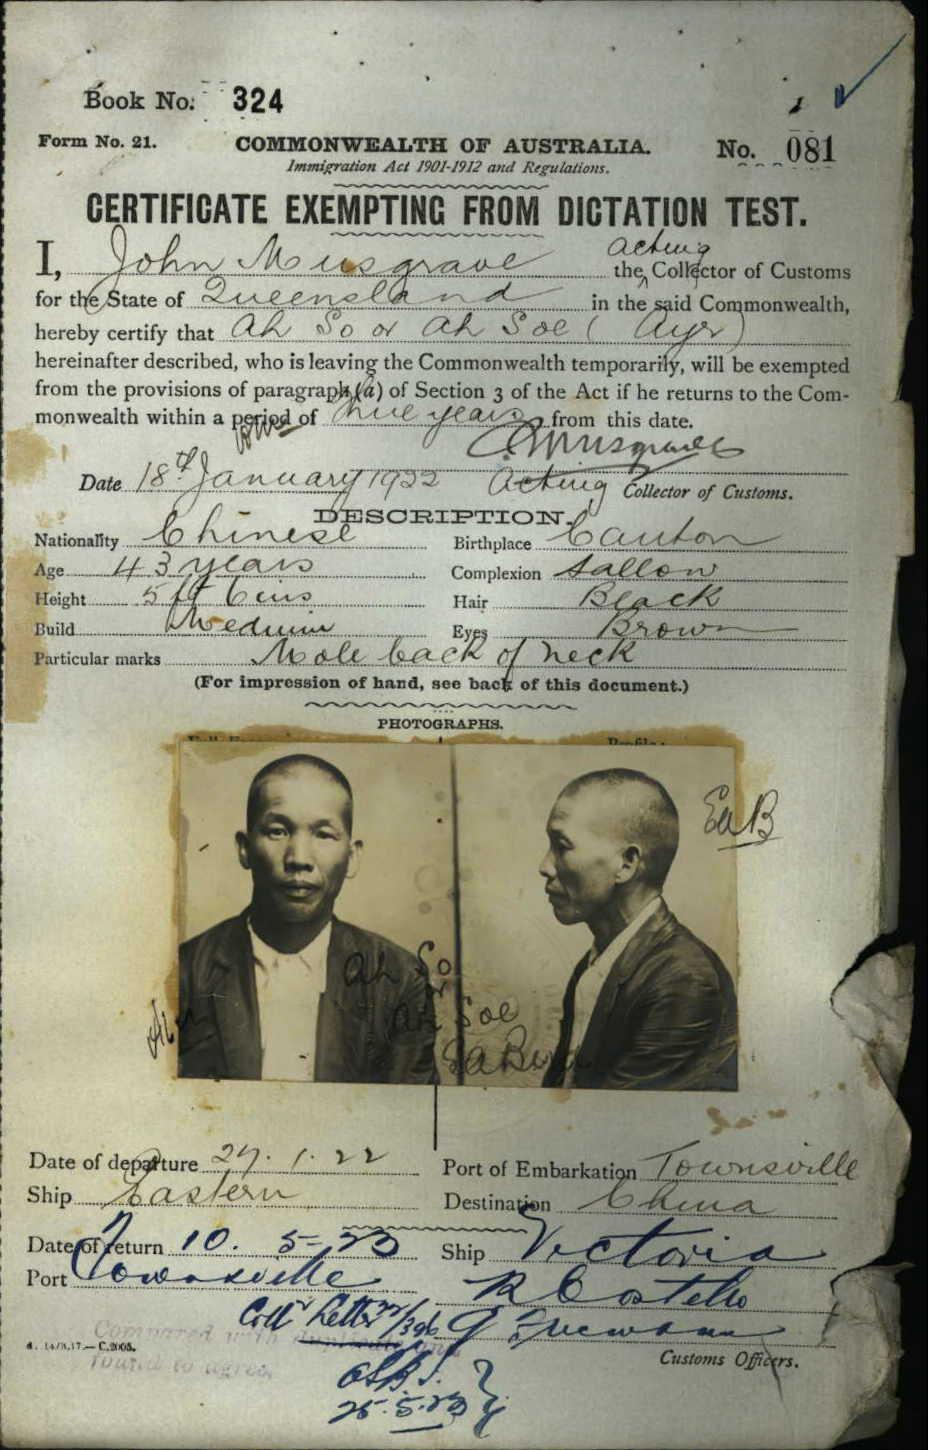 Book No. 324
Form No. 21. COMMONWEALTH OF AUSTRALIA. No. 081
Immigration Act 1901-1912 and Regulations.
CERTIFICATE EXEMPTING FROM DICTATION TEST.
acting
I, John Musgrave the Collector of Customs
for the State of Queensland in the said Commonwealth,
hereby certify that Ah So or Ah Soe (Ayr)
hereinafter described, who is leaving the Commonwealth temporarily, will be exempted
from the provisions of paragraph (a) of Section 3 of the Act if he returns to the Com-
monwealth within a period of years from this date.
Musgrave
Date 18th January 1922 Acting Collector of Customs.
DESCRIPTION.
Nationality Chinese Birthplace Canton
Age 43 years Complexion Sallow
Height 5 ft 6 ins Hair Black
Build Medium Eyes Brown
Particular marks Mole back of neck
(For impression of hand, see back of this document.)
PHOTOGRAPHS.
Profile:
EaB
Ah So
or
Ah Soe
Date of departure 27.1.22 Port of Embarkation Townsville
Ship Eastern Destination China
Date of return 10.5-23 Ship Victoria
Port Townsville R Costello
Letter
Compared with duplicate and
found to agree.
Customs Officers.
25.5.23